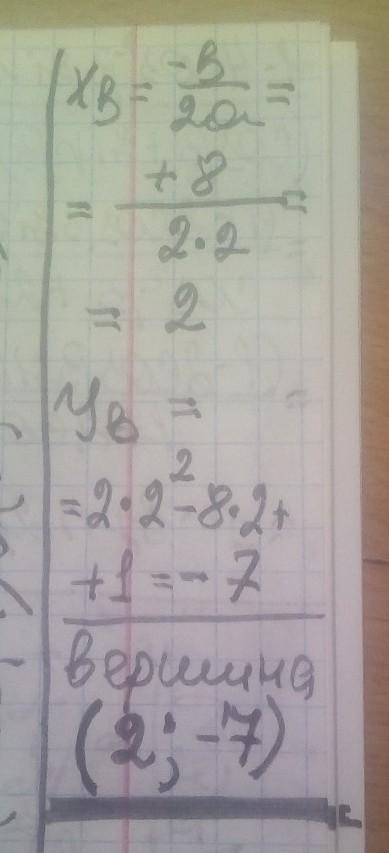 xв = -в/2a =
= +8/2·2 =
= 2
yв =
= 2·2²-8·2+
+1 = -7
вершина
(2; -7)